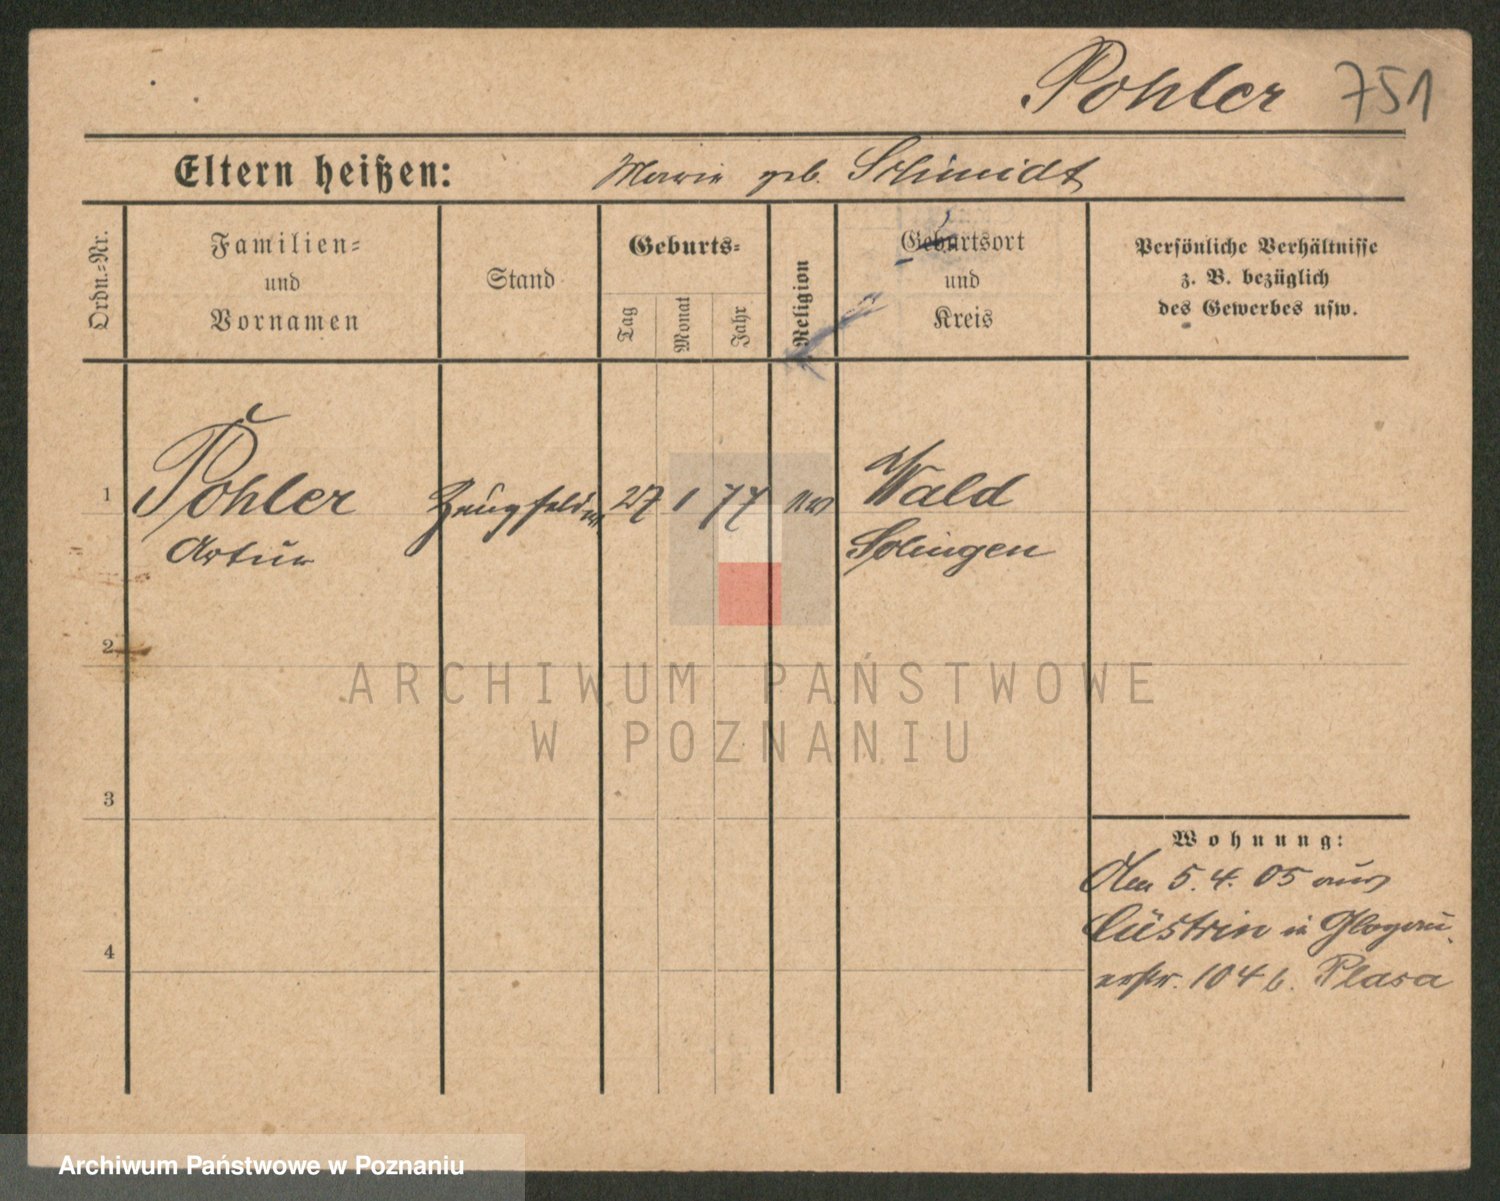 Pohler 751
Eltern heißen: Marie geb. Schmidt
Ordn.=Nr.
Familien=
und
Vornamen
Stand
Geburts=
Tag
Monat
Jahr
Religion
Geburtsort
und
Kreis
Persönliche Verhältnisse
z. B. bezüglich
des Gewerbes usw.
1 Pohler 27 1 77 Wald
Artur Solingen
2
3
4
Wohnung:
5. 4. 05 aus
Cüstrin in Glogau
erstr. 104 b. Plasa
ARCHIWUM PAŃSTWOWE
W POZNANIU
Archiwum Państwowe w Poznaniu